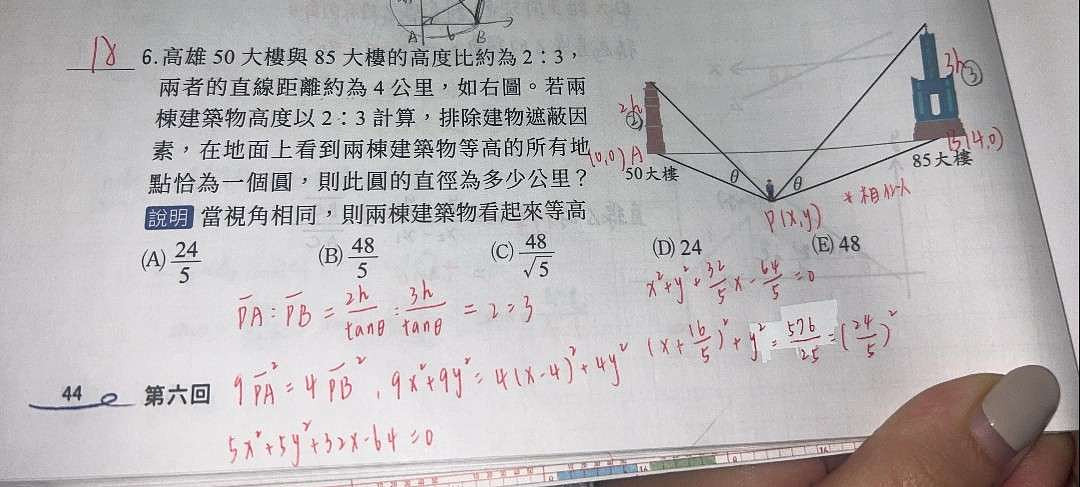 A
b
B
6. 高雄 50 大樓與 85 大樓的高度比約為 2：3，
兩者的直線距離約為 4 公里，如右圖。若兩
棟建築物高度以 2：3 計算，排除建物遮蔽因
素，在地面上看到兩棟建築物等高的所有地
點恰為一個圓，則此圓的直徑為多少公里？
說明 當視角相同，則兩棟建築物看起來等高
2h
②
3h
③
(0,0) A
50大樓
θ
θ
B(4,0)
85大樓
P(x,y)
*相似
(A) 24/5
(B) 48/5
(C) 48/√5
(D) 24
(E) 48
P̅A̅ : P̅B̅ = 2h/tanθ : 3h/tanθ = 2:3
x²+y²+32/5x-64/5=0
9P̅A̅² = 4P̅B̅², 9x²+9y²=4(x-4)²+4y²
(x+16/5)²+y²=576/25=(24/5)²
5x²+5y²+32x-64=0
44 第六回